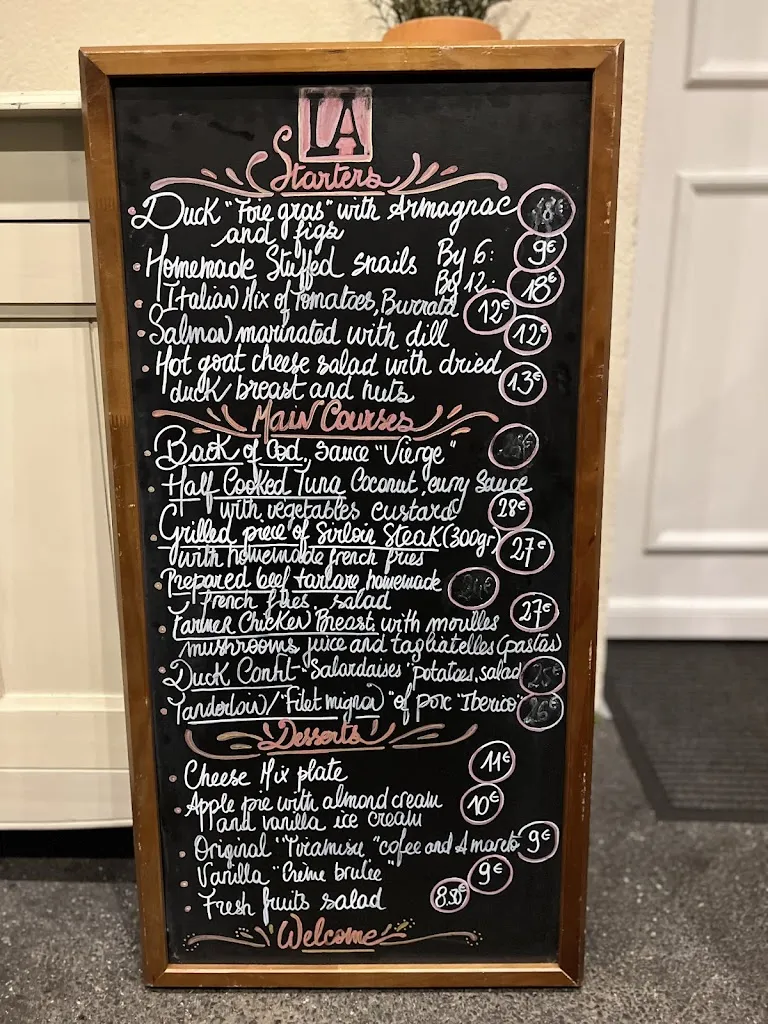 LA
Starters
Duck "Foie gras" with Armagnac
and figs
Homemade Stuffed snails By 6: 9€
By 12: 18€
Italian Mix of Tomatoes, Burrata 12€
Salmon marinated with dill 12€
Hot goat cheese salad with dried
duck breast and nuts 13€
Main Courses
Back of Cod, Sauce "Vierge"
Half Cooked Tuna Coconut, curry Sauce
with vegetables custard 28€
Grilled piece of Sirloin Steak (300gr) 27€
with homemade french fries
Prepared beef tartare homemade
french fries, salad
Farmer Chicken Breast, with morilles 27€
mushrooms juice and tagliatelles (pastas)
Duck Confit - "Salardaises" potatoes, salad 25€
Tanderloin/"Filet mignon" of porc "Iberico" 26€
Desserts
Cheese Mix plate 11€
Apple pie with almond cream 10€
and vanilla ice cream
Original "Tiramisu" cofee and Amareto 9€
Vanilla "Crème brulée" 9€
Fresh fruits salad 8.80€
Welcome